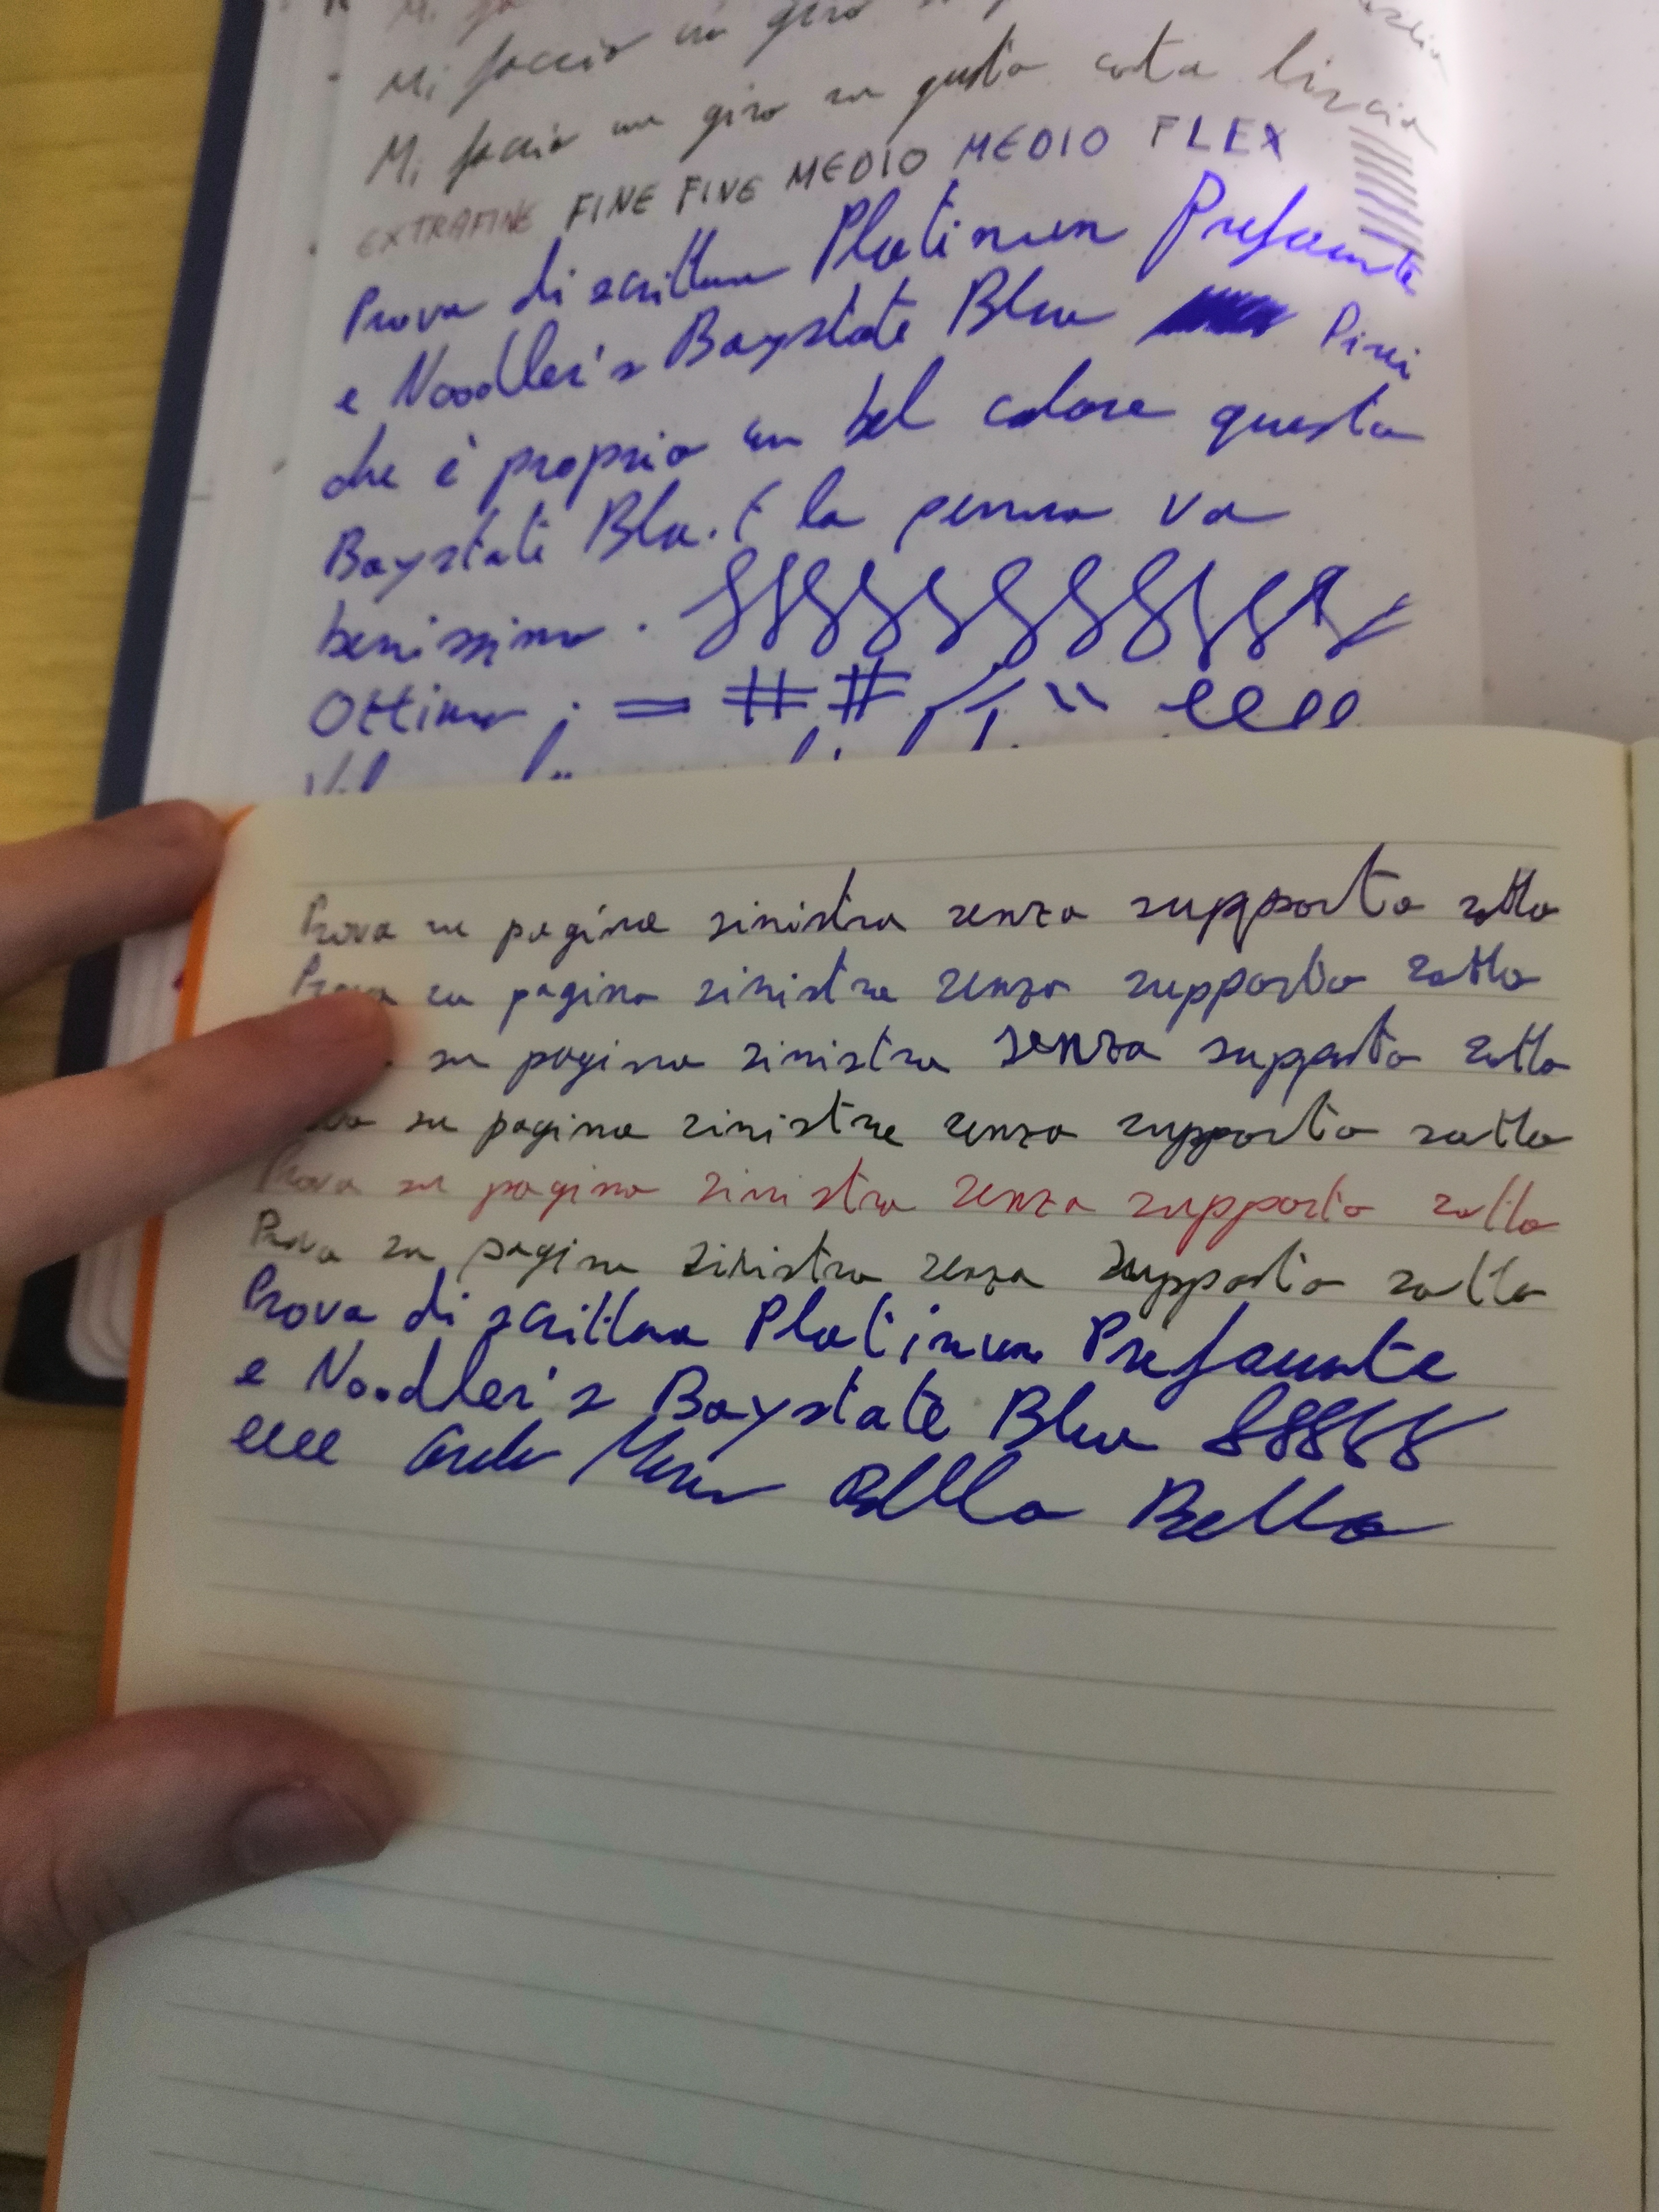 Mi faccio un giro
Mi faccio un giro su questa carta liscia
EXTRAFINE FINE FINE MEDIO MEDIO FLEX
Prova di scrittura Platinum Prefounte
e Noodler's Baystate Blue
che è proprio un bel colore questo
Baystate Blu. E la penna va
benissimo.
Ottimo ; = # #
Prova su pagina sinistra senza supporto sotto
Prova su pagina sinistra senza supporto sotto
su pagina sinistra senza supporto sotto
su pagina sinistra senza supporto sotto
Prova su pagina sinistra senza supporto sotto
Prova su pagina sinistra senza supporto sotto
Prova di scrittura Platinum Prefounte
e Noodler's Baystate Blue 88888
eeee Bella Bella